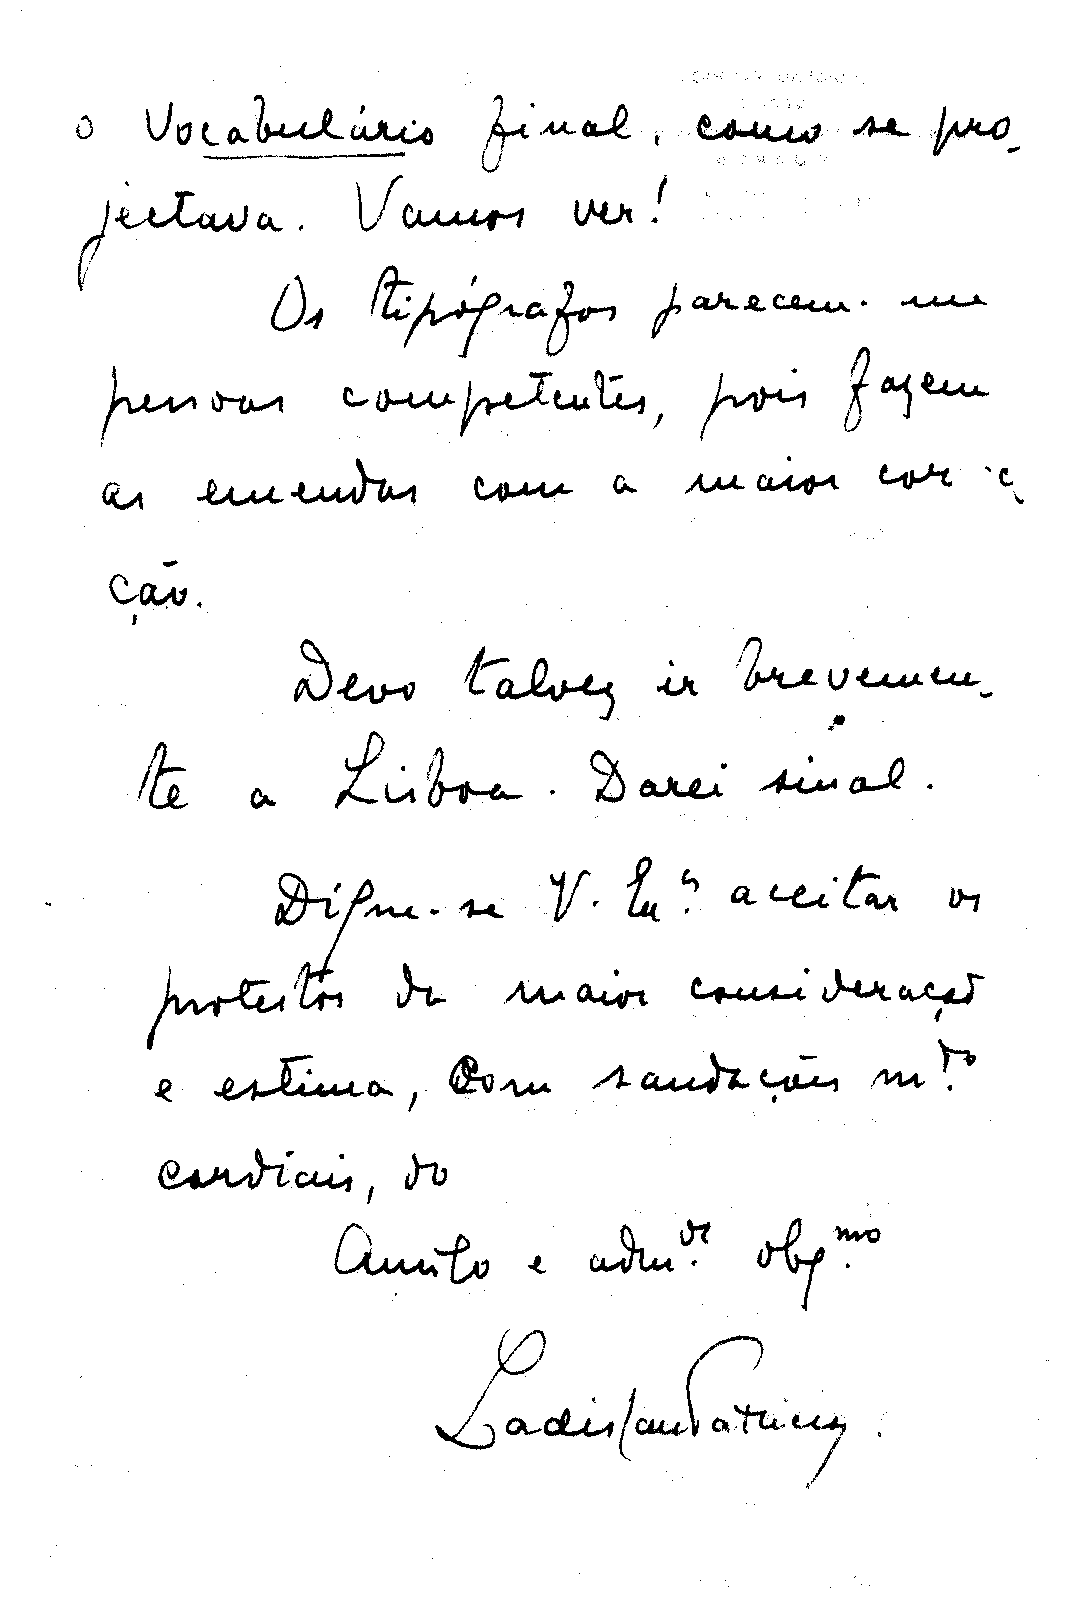 o Vocabulário final, como se pro-
jectava. Vamos ver!
Os tipógrafos parecem-me
pessoas competentes, pois fazem
as emendas com a maior correc
ção.
Devo talvez ir brevemen-
te a Lisboa. Darei sinal.
Digne-se V. Ex.ª aceitar os
protestos da maior consideração
e estima, com saudações m.to
cordiais, do
Amigo e adm.or obg.mo
Ladislau Patrício.